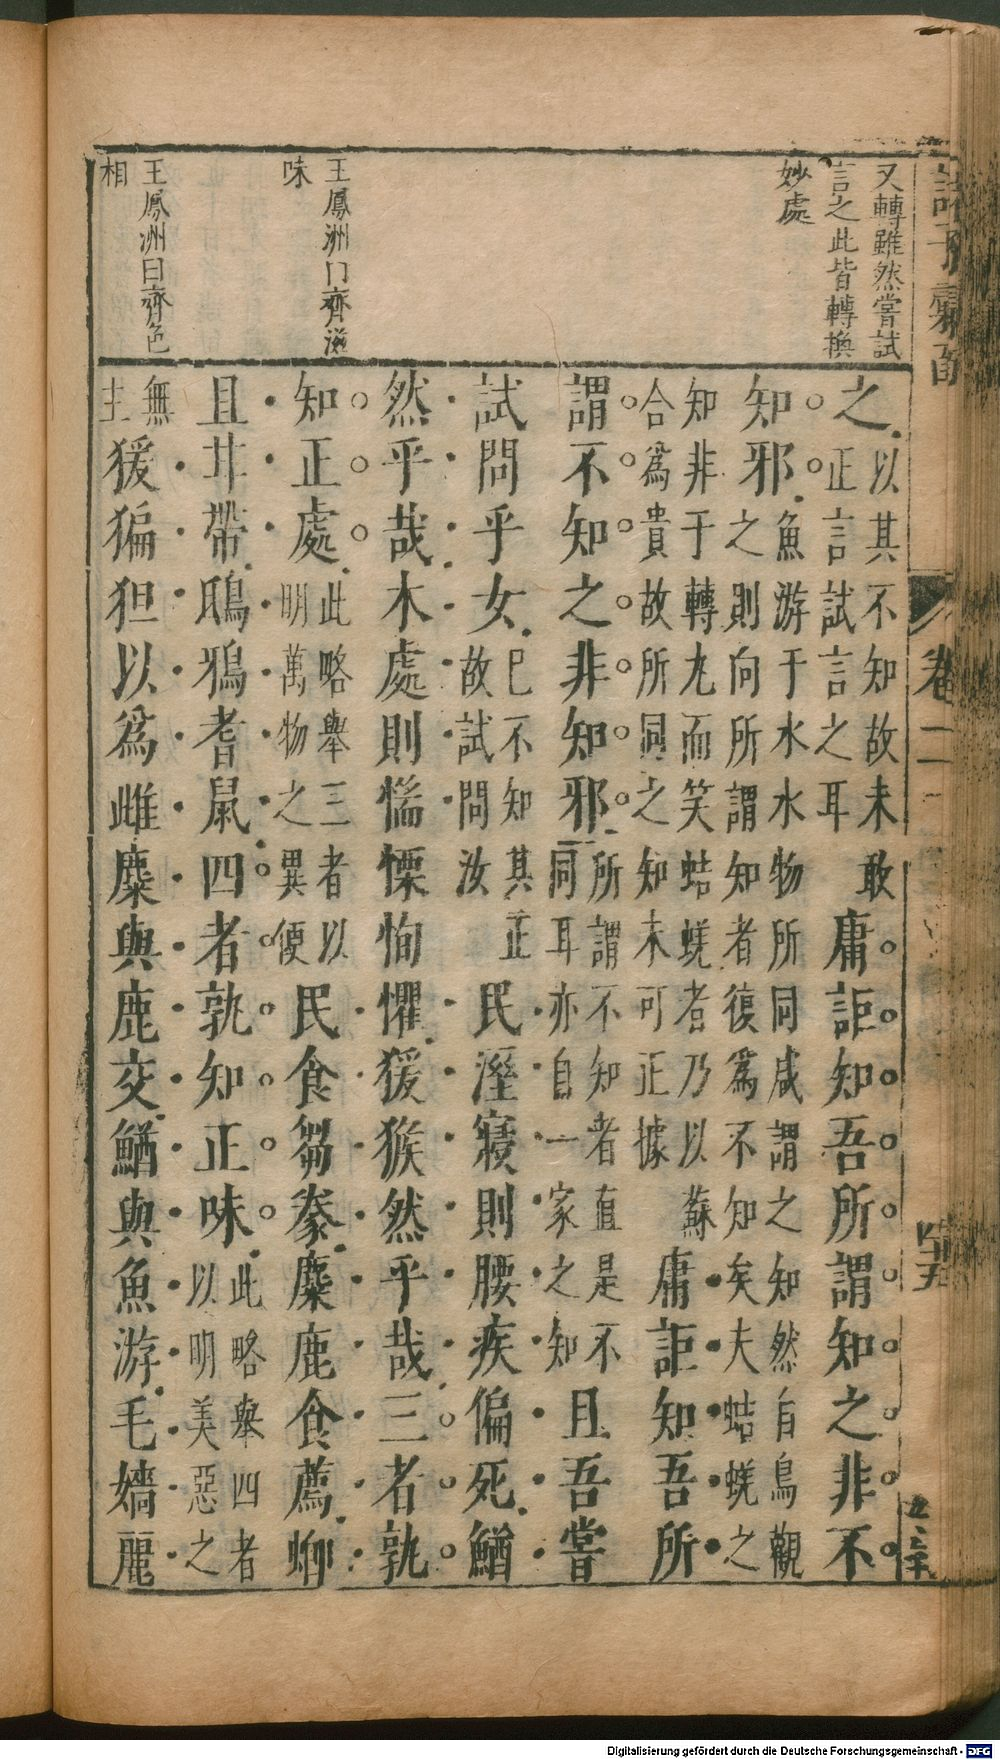 又轉雖然嘗試
言之此皆轉換
妙處
王鳳洲曰齊滋
味
王鳳洲曰齊色
相
諸子彙函
卷二
四十五
之以其不知故未敢
正言試言之耳
庸詎知吾所謂知之非不
知邪魚游于水水物所同咸謂之知然自鳥觀
之則向所謂知者復爲不知矣夫蛣蜣之
知非于轉丸而笑蛣蜣者乃以蘇
合爲貴故所同之知未可正據
庸詎知吾所
謂不知之非知邪所謂不知者直是不
同耳亦自一家之知
且吾嘗
試問乎女已不知其正
故試問汝
民溼寢則腰疾偏死鰌
然乎哉木處則惴慄恂懼猨猴然乎哉三者孰
知正處此略舉三者以
明萬物之異便
民食芻豢麋鹿食薦蝍
且甘帶鴟鴉耆鼠四者孰知正味此略舉四者
以明美惡之
無
主
猨猵狙以爲雌麋與鹿交鰌與魚游毛嬙麗
Digitalisierung gefördert durch die Deutsche Forschungsgemeinschaft - DFG